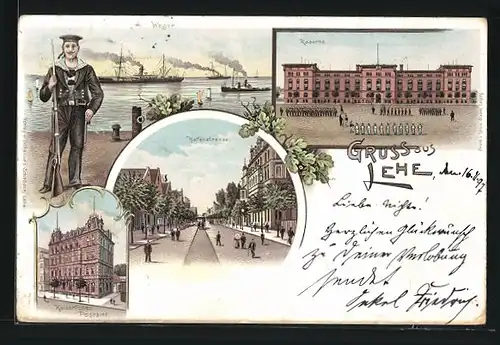 Weser
Kaserne
Hafenstrasse
GRUSS AUS
LEHE, den 16.8.97
Liebe Nichte!
Herzlichen Glückwunsch
zu Deiner Verlobung
sendet
Onkel Friedrich
Kaiserliches
Postamt